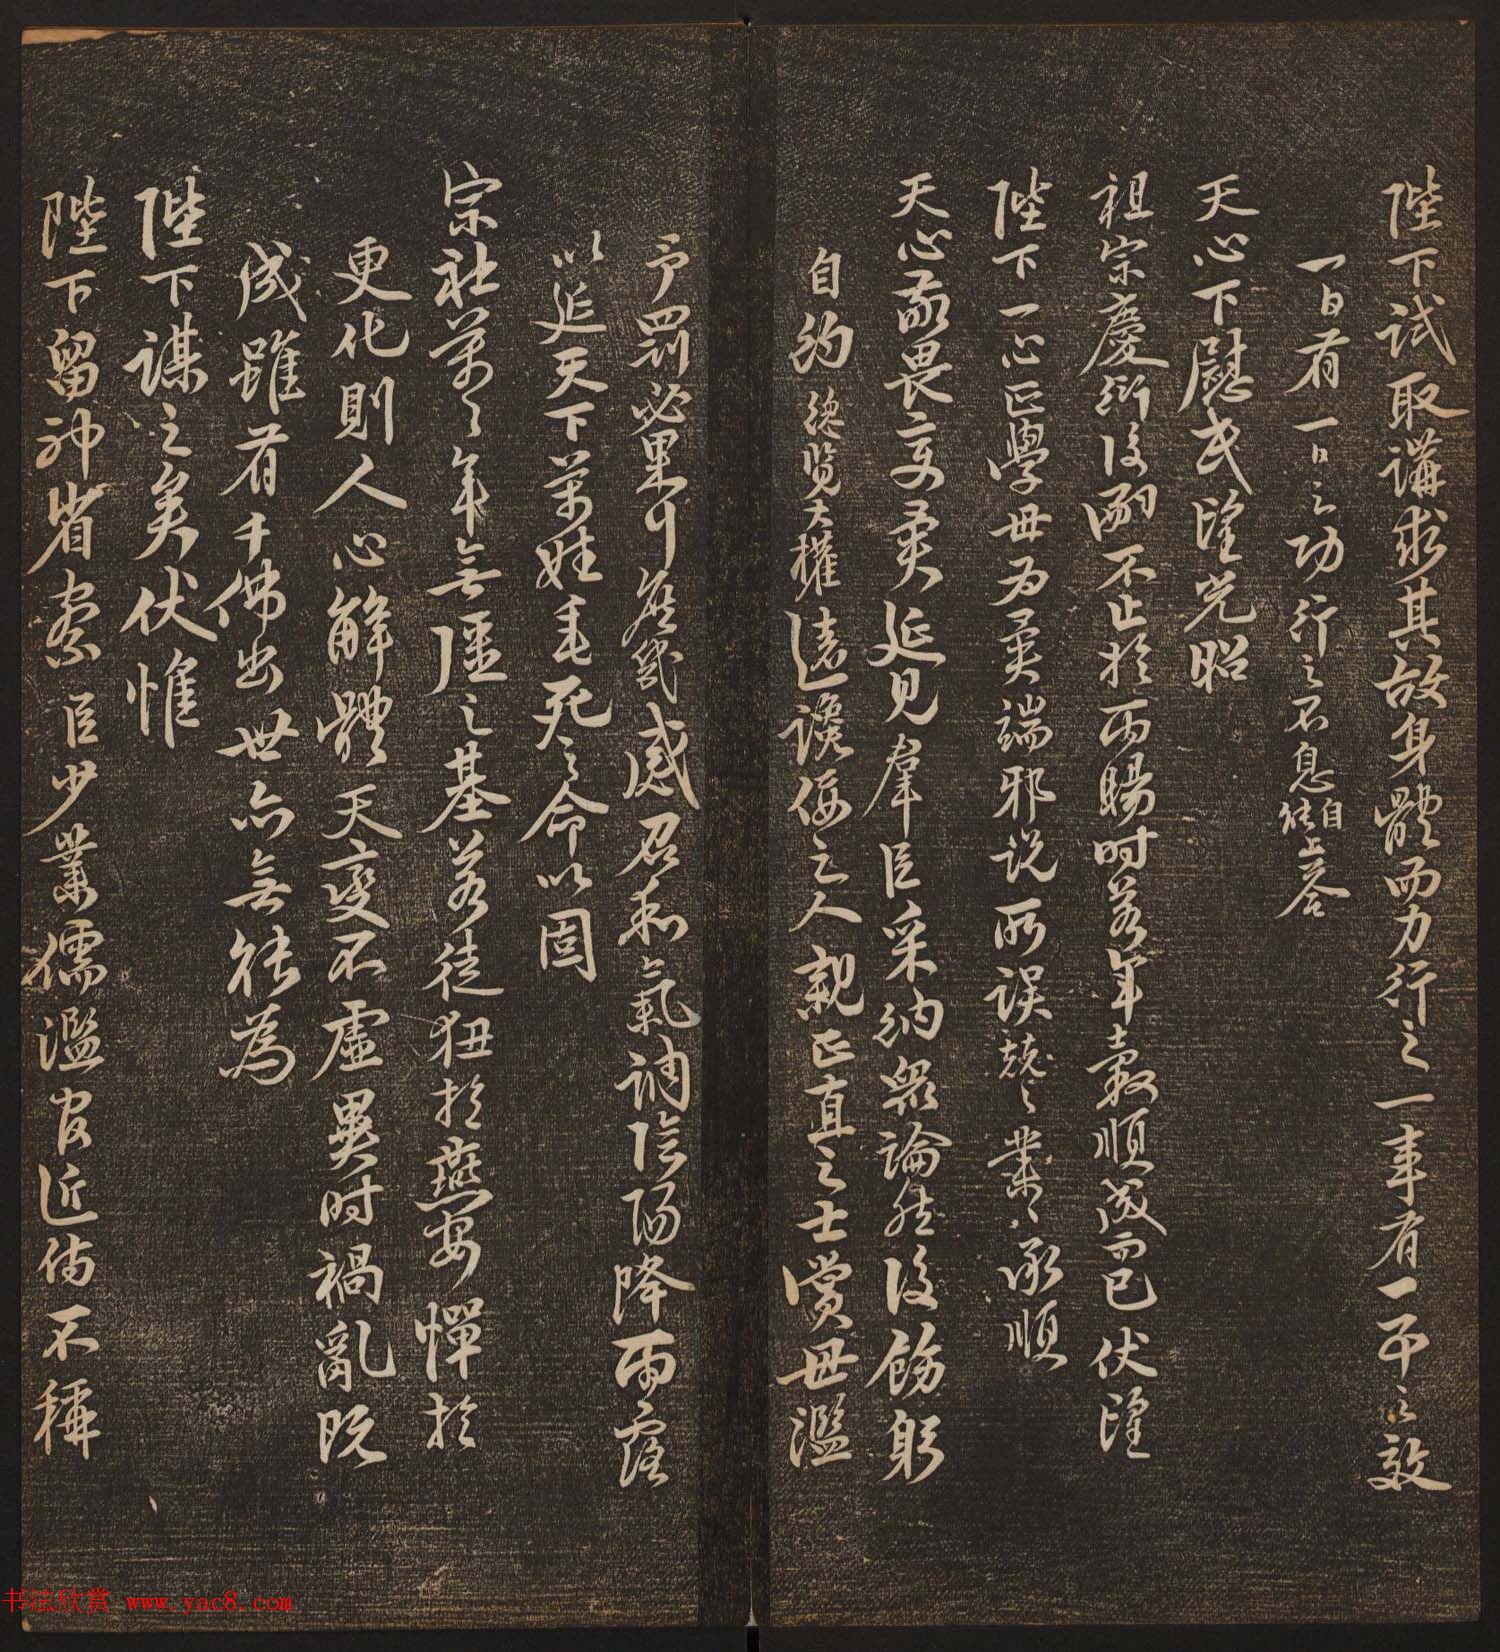 陛下試取講求其故身體而力行之一事有一事之效
一日有一日之功行之不息自能上答
天心下慰民望光昭
祖宗慶衍後嗣不止於雨暘時若年穀順成而已伏望
陛下一心正學毋為異端邪說所誤兢兢業業承順
天心敬畏変異延見羣臣采納眾論然後飭躬
自約總覽大權遠讒佞之人親正直之士賞毋濫
予罰必果行庶幾感召和氣調陰陽降雨露
以延天下萬姓毛死之命以固
宗社萬萬年無疆之基若徒狃於燕安憚於
更化則人心解體天变不虛異時禍亂既
成雖有千佛出世亦無能為
陛下謀之矣伏惟
陛下留神省察臣少業儒濫官近侍不稱
书法欣赏 www.yac8.com